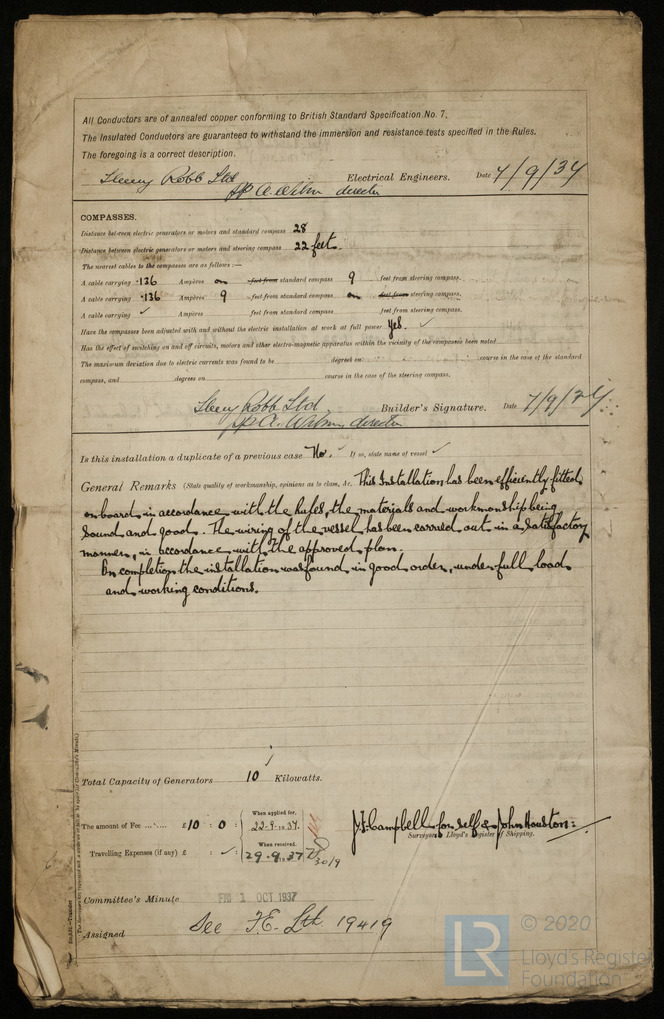 All Conductors are of annealed copper conforming to British Standard Specification No. 7.
The Insulated Conductors are guaranteed to withstand the immersion and resistance tests specified in the Rules.
The foregoing is a correct description.
Henry Robb Ltd Electrical Engineers. Date 7/9/37
director
COMPASSES.
Distance between electric generators or motors and standard compass 28
Distance between electric generators or motors and steering compass 22 feet.
The nearest cables to the compasses are as follows:—
A cable carrying .136 Ampères on feet from standard compass 9 feet from steering compass.
A cable carrying .136 Ampères 9 feet from standard compass on feet from steering compass.
A cable carrying ✓ Ampères feet from standard compass feet from steering compass.
Have the compasses been adjusted with and without the electric installation at work at full power Yes. ✓
Has the effect of switching on and off circuits, motors and other electro-magnetic apparatus within the vicinity of the compasses been noted
The maximum deviation due to electric currents was found to be degrees on course in the case of the standard
compass, and degrees on course in the case of the steering compass.
Henry Robb Ltd Builder's Signature. Date 7/9/
director
Is this installation a duplicate of a previous case No. ✓ If so, state name of vessel ✓
General Remarks (State quality of workmanship, opinions as to class, &c. This Installation has been efficiently fitted
on board in accordance with the Rules, the materials and workmanship being
sound and good. The wiring of the vessel has been carried out in a satisfactory
manner, in accordance with the approved plan.
On completion the installation was found in good order, under full load
and working conditions.
Total Capacity of Generators 10 Kilowatts.
The amount of Fee £10 : 0 : When applied for, 22.9.1937.
When received,
Travelling Expenses (if any) £ : ✓ : 29.9.1937 30/9
J. Campbell for self & John Houston:
Surveyors Lloyd's Register of Shipping.
Committee's Minute FRI 1 OCT 1937
Assigned See F.E. Lth. 19419
© 2020
LR
Lloyd's Register
Foundation